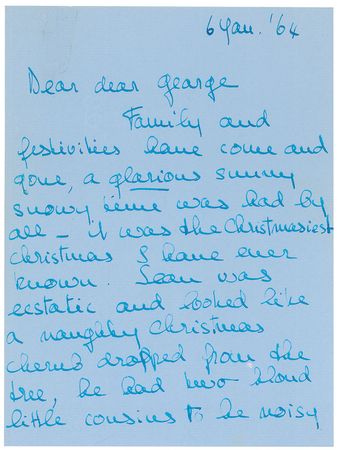 6 Jan. '64
Dear dear George
Family and
festivities have come and
gone, a glorious sunny
snowy time was had by
all – it was the Christmasiest
Christmas I have ever
known. Sean was
ecstatic and looked like
a naughty Christmas
cherub dropped from the
tree, he had two blond
little cousins to be noisy